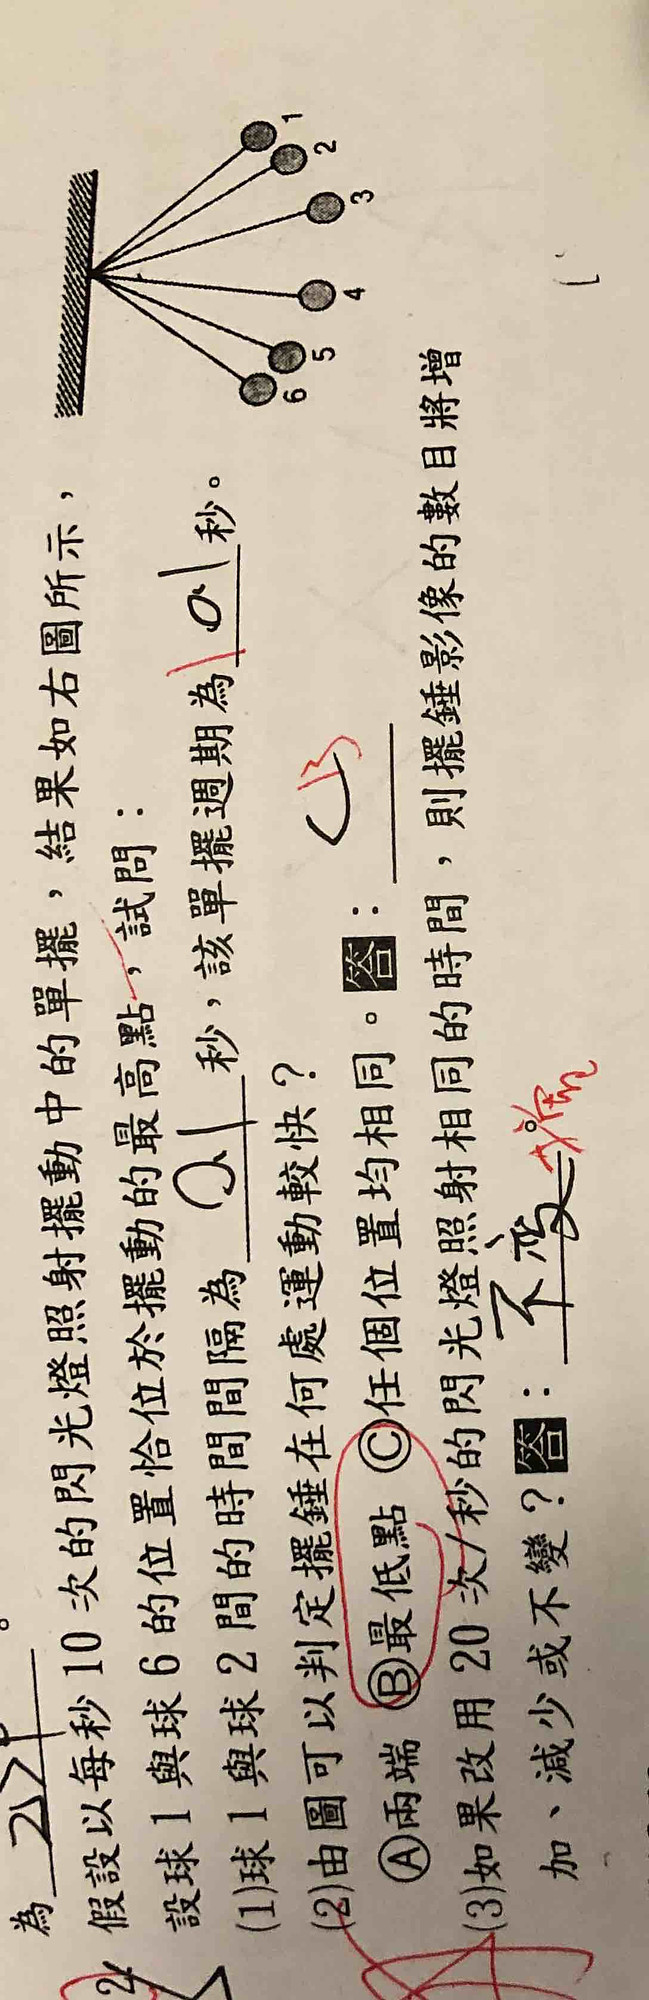 為
假設以每秒10次的閃光燈照射擺動中的單擺，結果如右圖所示，
設球1與球6的位置恰位於擺動的最高點，試問：
(1)球1與球2間的時間間隔為 0.1 秒，該單擺週期為 1 秒。
(2)由圖可以判定擺錘在何處運動較快？
Ⓐ兩端 Ⓑ最低點 Ⓒ任個位置均相同。答：
(3)如果改用20次/秒的閃光燈照射相同的時間，則擺錘影像的數目將增
加、減少或不變？答：不變。
1
2
3
4
5
6